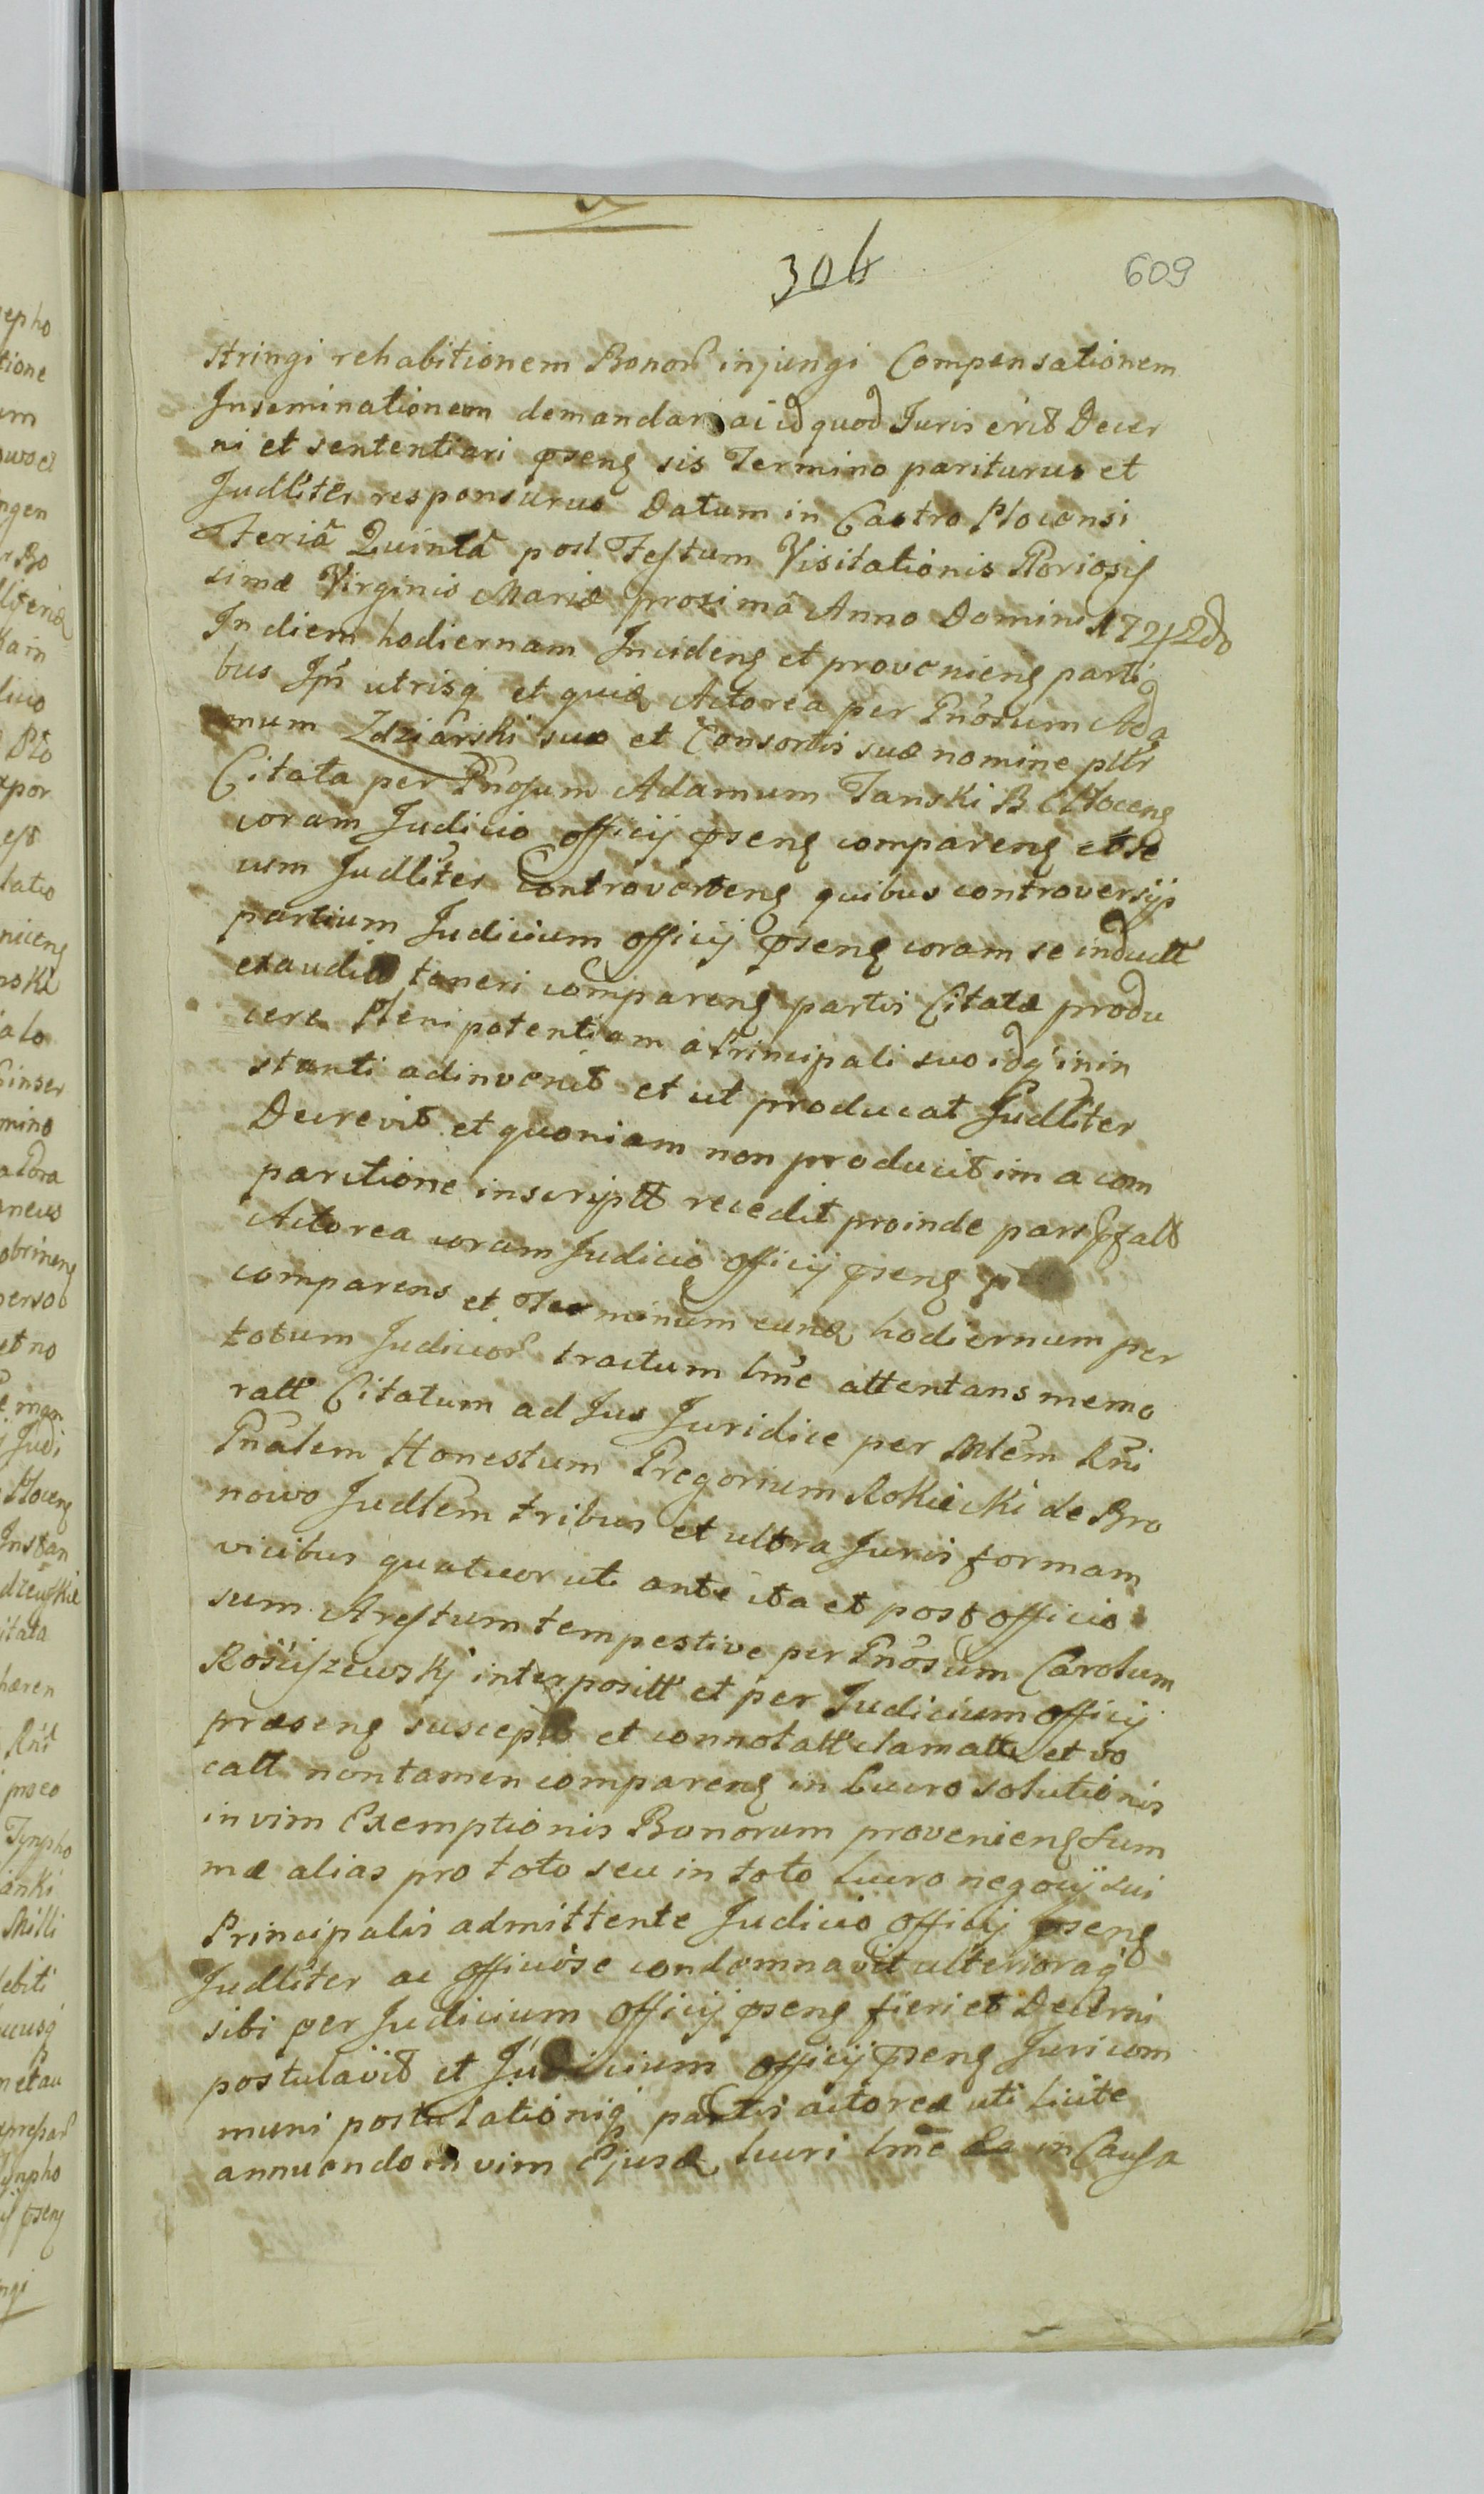 306
609
stringi rehabitionem Bonor̃ injungi Compensationem
Inseminationem demandari ac id quod Juris erit Decer
ni et sententiari p̄sens sis Termino pariturus et
Judl̃iter responsurus Datum in Castro Plocensi
Feriâ Quintâ post Festum Visitationis Gloriosis
simæ Virginis Mariæ proximâ Anno Domini 172 2do
In diem hodiernam Incidens et proveniens parti
bus Ip̃i utrisq et quia Actorea per Gn̄osum Ada
mum Zdziarski suo et Consortis suæ nomine ptt̃r
Citata per Gn̄osum Adamum Janski B Plocens
coram Judicio officij p̄sens comparens et se
cum Judl̃iter Controvertens quibus controversijs
partium Judicium officij p̄sens coram se induct̃
exaudit teneri comparens partis Citatæ produ
cere Plenipotentiam a Principali suo idq' inin
stanti adinvenit et ut producat Judl̃iter
Decrevit et quoniam non producit im a com
paritione inscriptt recedit proinde pars p̄falt
Actorea coram Judicio officij p̄sens
comparens et Terminum eund hodiernum per
totum Judicior̃ tractum lm̃e attentans memo
ratt Citatum ad Jus Juridice per Mlēm Rñi
Gn̄alem Honestum Gregorium Rokicki de Bro
nowo Judl̃em tribus et ultra Juris formam
vicibus quatuor uti ante ita et post officio
sum Arestum tempestive per Gn̄osum Carolum
Rosciszewskj interpositt et per Judicium officij
præsens suscept et connotatt clamatt et vo
catt non tamen comparens in Lucro solutionis
in vim Exemptionis Bonorum proveniens Sum
mæ alias pro toto seu in toto lucro negocij sui
Principalis admittente Judicio officij p̄sens
Judl̃iter ac officiose condemnavit ulterioraq
sibi per Judicium officij p̄sens fieri et Decerni
postulavit et Judicium officij p̄sens Juri com
muni postulationiq partis actoreæ uti licite
annuendo in vim Ejusd lucri lm̃e in Causa